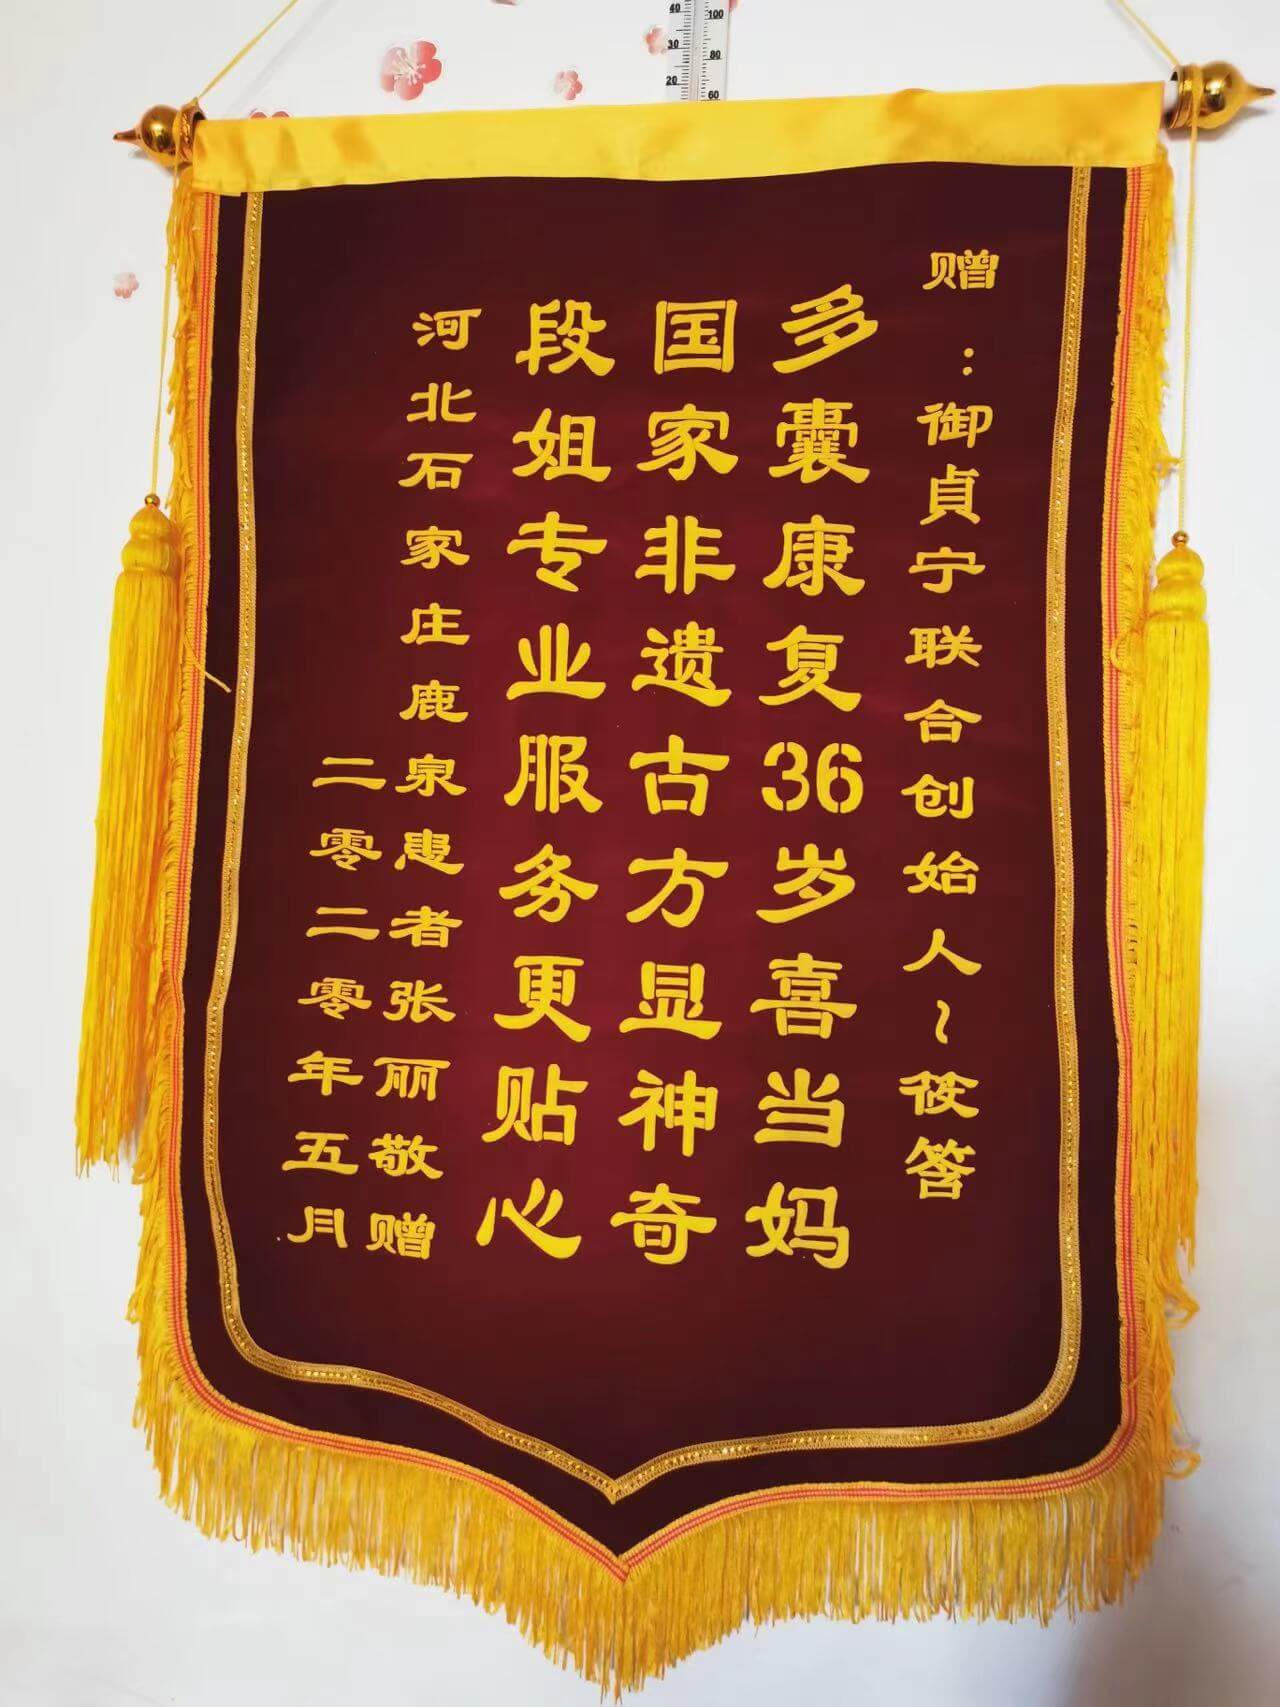 赠：御貞宁联合创始人~筱答
多囊康复36岁喜当妈
国家非遗古方显神奇
段姐专业服务更贴心
河北石家庄鹿泉患者张丽敬赠
二零二零年五月
40
30
20
100
80
60